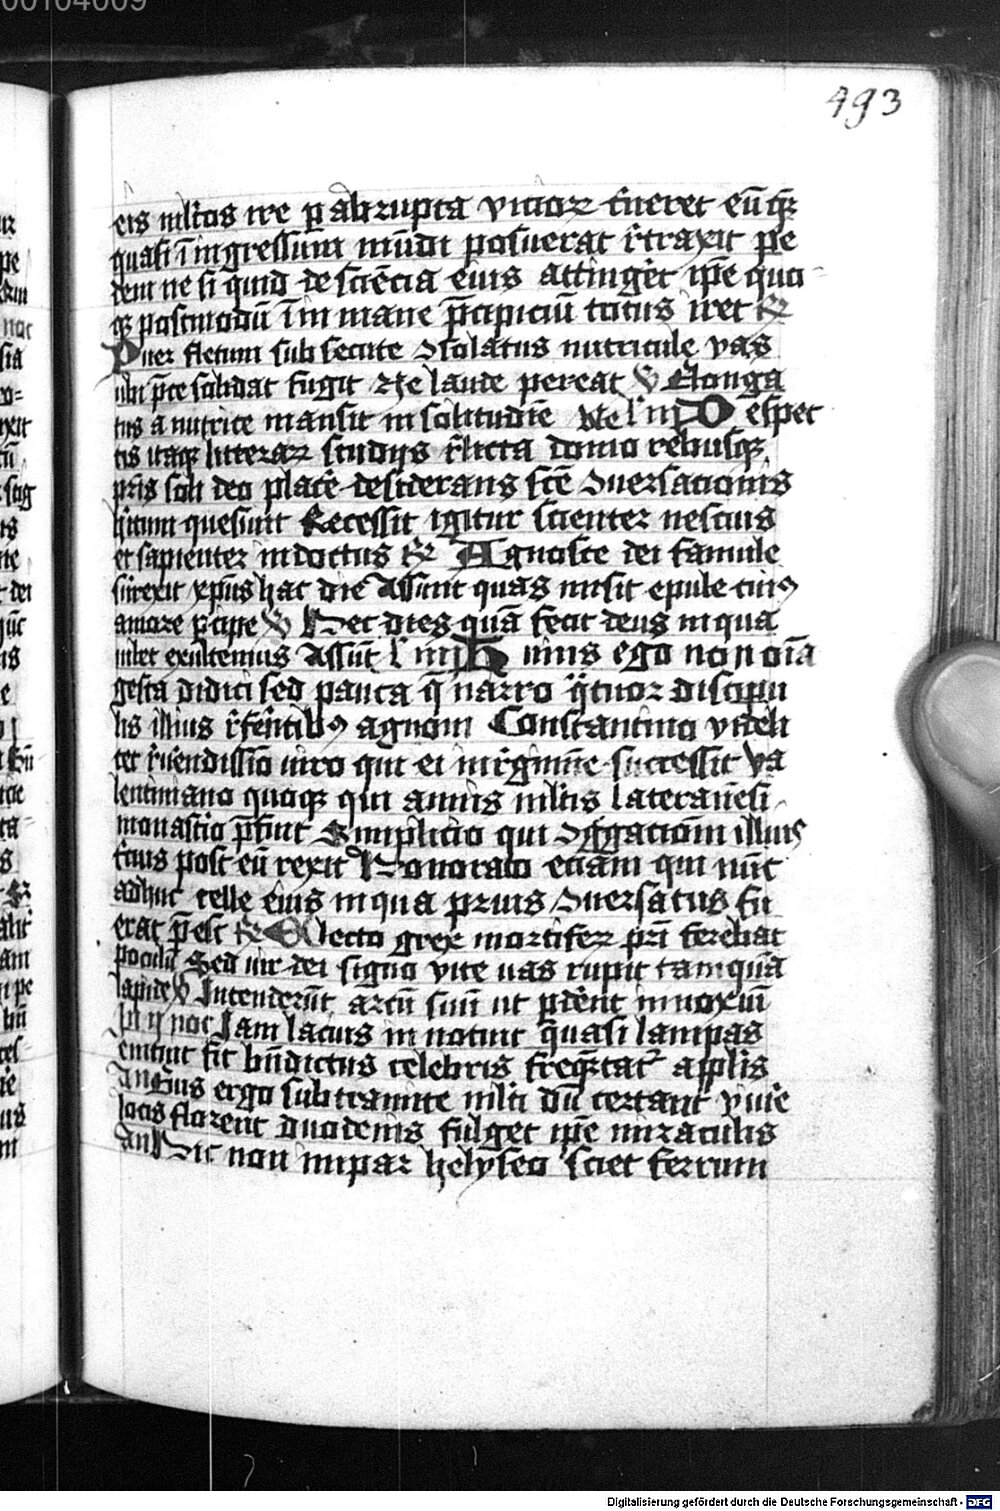 00104009
493
eis ml̄tos ire p abrupta vicior fueret eū q̄
quasi ī ingressum mūdi posuerat r̄traxit pe
dem ne si quid de sciēcia eius attingēt ip̄e quo
q̄ postmodū ī immane p̄cipiciū totus iret R
Puer fletum sub secute ↄsolatus nutricule vas
ubi p̄ce solidat fugit ne laude pereat V Elonga
tus a nutrice mansit in solitudīe Ne Despec
tis itaq̄ litterar studijs r̄licta domo rebusq̄
p̄ris soli deo placē desiderans sc̄e ↄuersacionis
h̄itum quesiuit Recessit igitur scienter nescius
et sapienter indoctus R Agnosce dei famule
surexit xp̄us hac die Assunt quas misit epule cuiꝰ
amore p̄cipe V Hec dies quā fecit deus in qua
iubet exultemus Assūt Huius ego non oīa
gesta didici sed pauca q̄ narro q̄tuor discipu
lis illius r̄fer̄tibꝰ agnoui Constantino videli
cet r̄uendissīo uiro qui ei in r̄gimīe successit Va
lentiniano quoq̄ qui annis ml̄tis lateranēsi
monast̄io p̄fuit Simplicio qui ↄg̈gacionem illius
t̄cius post eū rexit Honorato eciam qui nūc
adhuc celle eius in qua prius ↄuersatus fu
erat p̄est R Electo grex mortifer p̄ri ferebat
poculū Sed uir dei signo vite uas rupit tamquā
lapide V Intenderūt arcū suū ut p̄derēt innoxiū
Jam lacus in notuit quasi lampas
emicuit fit bn̄dictus celebris freq̄tat̄ applīs
Angl̄ius ergo sub tramite ml̄ti dū certant viuīe
locis florent duodenis fulget ip̄e miraculis
Hic non impar helyseo sciet ferrum
Digitalisierung gefördert durch die Deutsche Forschungsgemeinschaft - DFG